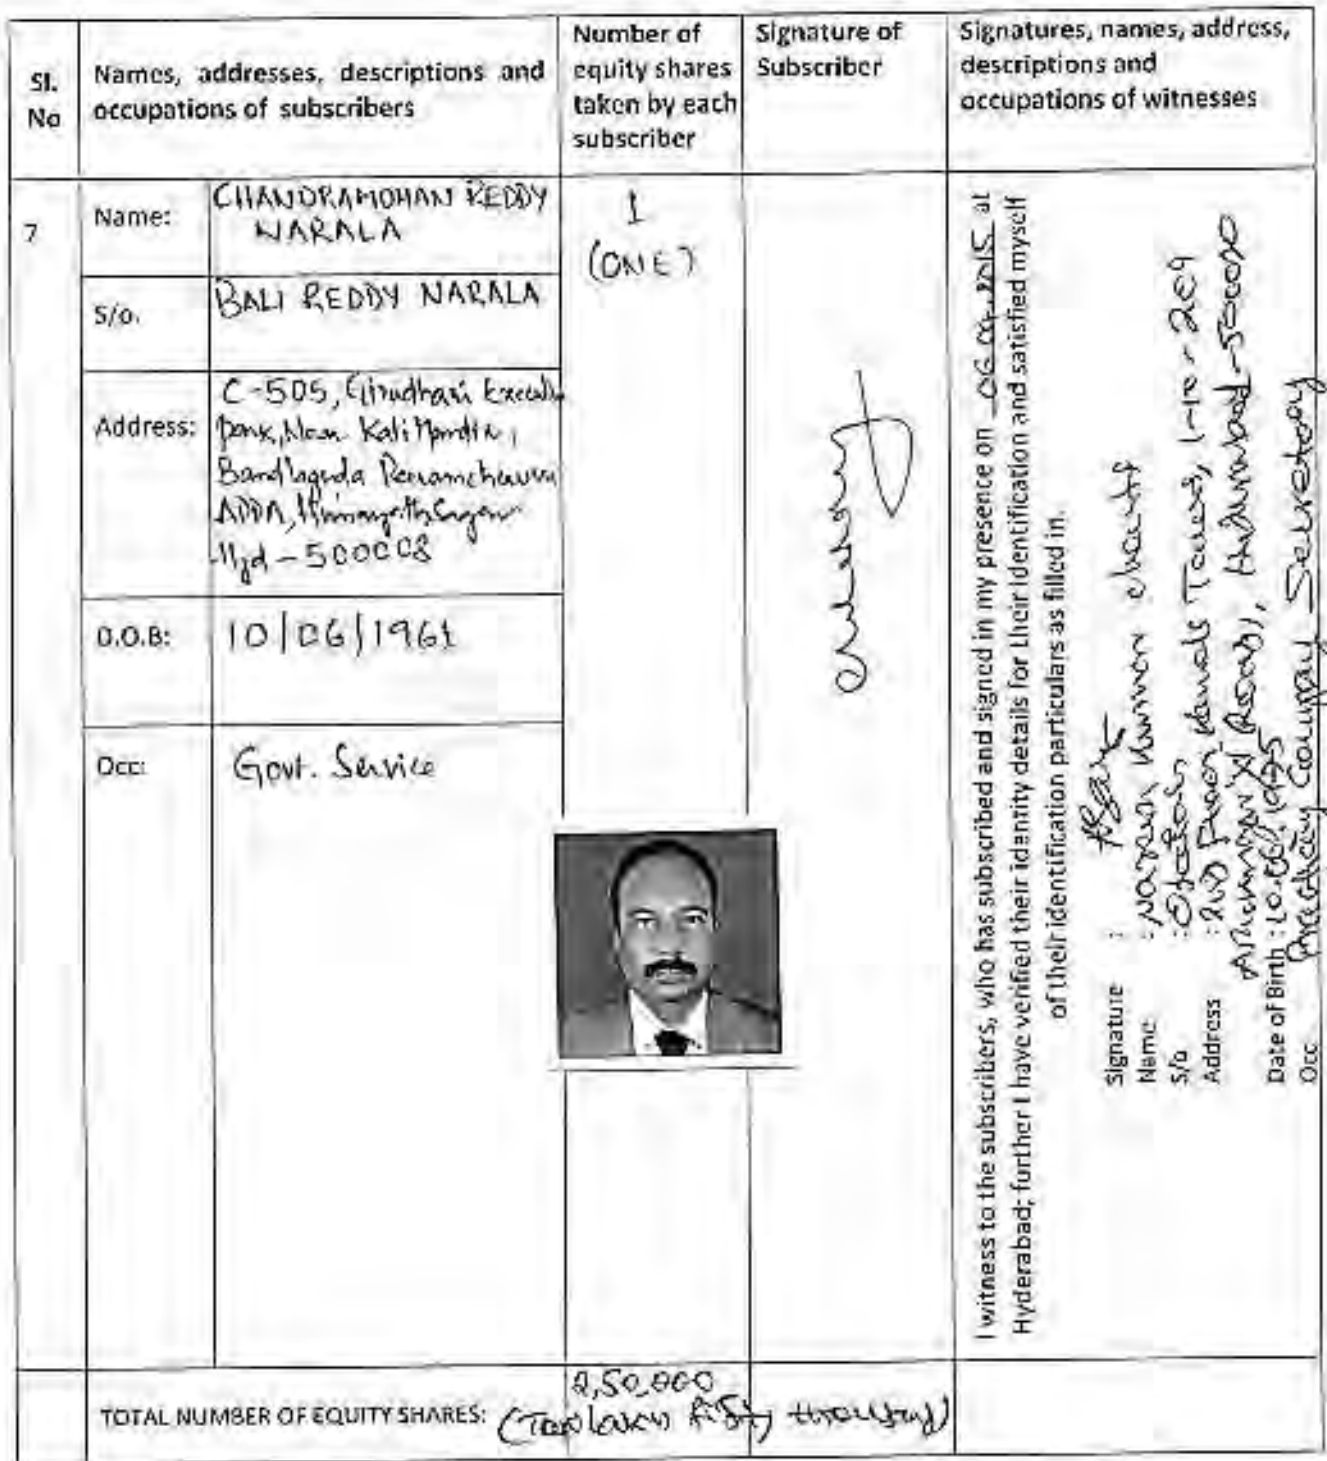 Sl.
No
Names, addresses, descriptions and
occupations of subscribers
Number of
equity shares
taken by each
subscriber
Signature of
Subscriber
Signatures, names, address,
descriptions and
occupations of witnesses
7
Name:
CHANDRAMOHAN REDDY
NARALA
1
(ONE)
S/o.
BALI REDDY NARALA
Address:
C-505,
Park, Near Kali Mandir,
Bandlaguda
ADDA,
Hyd - 500008
D.O.B:
10/06/1961
Occ:
Govt. Service
I witness to the subscribers, who has subscribed and signed in my presence on 06.09.2015 at
Hyderabad; further I have verified their identity details for their identification and satisfied myself
of their identification particulars as filled in.
Signature :
Name : Kumar
S/o :
Address : 2nd Floor, Towers, 1-10-209
Road, Hyderabad-500020
Date of Birth : 10.06.1975
Occ Company Secretary
TOTAL NUMBER OF EQUITY SHARES:
2,50,000
(Two lakhs fifty thousand)